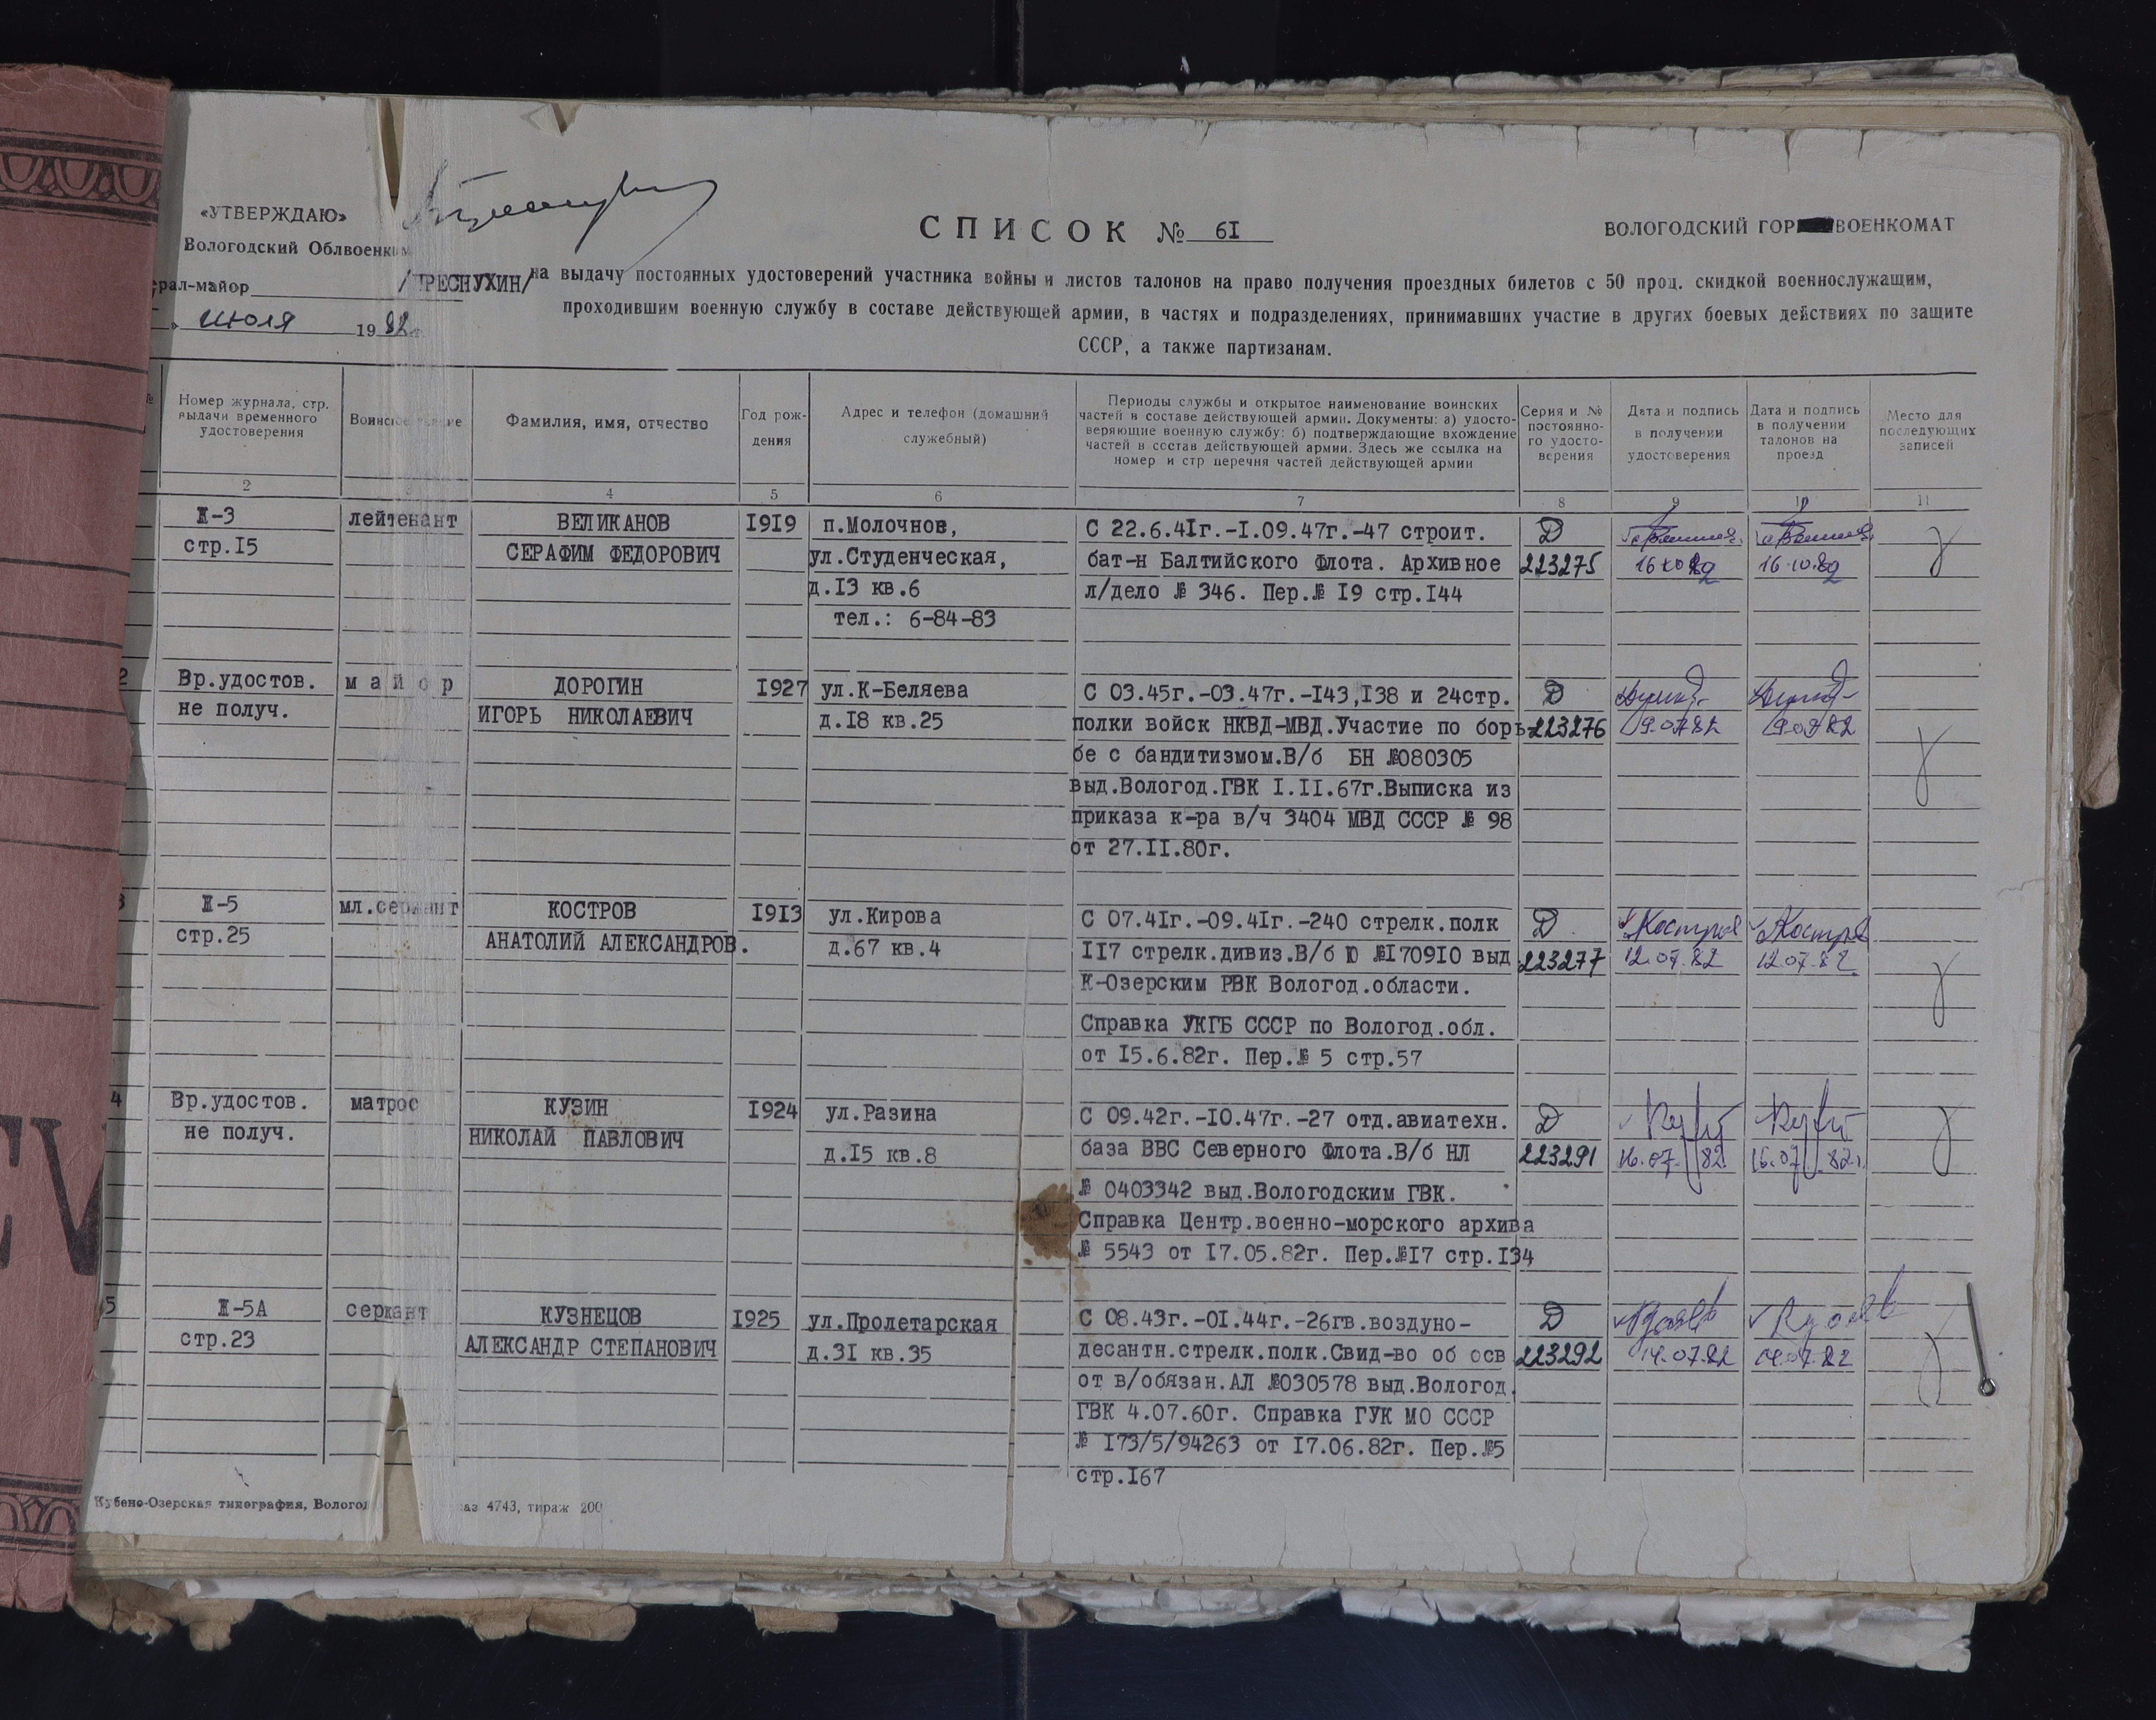 «УТВЕРЖДАЮ»
Вологодский Облвоенком
рал-майор /ПРЕСНУХИН/
» июля 1982г.
СПИСОК № 61
ВОЛОГОДСКИЙ ГОР ВОЕНКОМАТ
на выдачу постоянных удостоверений участника войны и листов талонов на право получения проездных билетов с 50 проц. скидкой военнослужащим,
проходившим военную службу в составе действующей армии, в частях и подразделениях, принимавших участие в других боевых действиях по защите
СССР, а также партизанам.
№
Номер журнала, стр. выдачи временного удостоверения
Воинское звание
Фамилия, имя, отчество
Год рож-
дения
Адрес и телефон (домашний
служебный)
Периоды службы и открытое наименование воинских
частей в составе действующей армии. Документы: а) удосто-
веряющие военную службу; б) подтверждающие вхождение
частей в состав действующей армии. Здесь же ссылка на
номер и стр перечня частей действующей армии
Серия и №
постоянно-
го удосто-
верения
Дата и подпись
в получении
удостоверения
Дата и подпись
в получении
талонов на
проезд
Место для
последующих
записей
2 3 4 5 6 7 8 9 10 11
Ж-3
стр.15
лейтенант
ВЕЛИКАНОВ
СЕРАФИМ ФЕДОРОВИЧ
1919
п.Молочное,
ул.Студенческая,
д.13 кв.6
тел.: 6-84-83
С 22.6.41г.-1.09.47г.-47 строит.
бат-н Балтийского Флота. Архивное
л/дело № 346. Пер.№ 19 стр.144
D
223275
16.10.82
16.10.82
2
Вр.удостов.
не получ.
майор
ДОРОГИН
ИГОРЬ НИКОЛАЕВИЧ
1927
ул.К-Беляева
д.18 кв.25
С 03.45г.-03.47г.-143,138 и 24стр.
полки войск НКВД-МВД.Участие по борь
бе с бандитизмом.В/б БН №080305
выд.Вологод.ГВК 1.11.67г.Выписка из
приказа к-ра в/ч 3404 МВД СССР № 98
от 27.11.80г.
D
223276
19.07.82
19.07.82
3
Ж-5
стр.25
мл.сержант
КОСТРОВ
АНАТОЛИЙ АЛЕКСАНДРОВ.
1913
ул.Кирова
д.67 кв.4
С 07.41г.-09.41г.-240 стрелк.полк
117 стрелк.дивиз.В/б Ю №170910 выд
К-Озерским РВК Вологод.области.
Справка УКГБ СССР по Вологод.обл.
от 15.6.82г. Пер.№ 5 стр.57
D
223277
Костров
12.07.82
Костров
12.07.82
4
Вр.удостов.
не получ.
матрос
КУЗИН
НИКОЛАЙ ПАВЛОВИЧ
1924
ул.Разина
д.15 кв.8
С 09.42г.-10.47г.-27 отд.авиатехн.
база ВВС Северного Флота.В/б НЛ
№ 0403342 выд.Вологодским ГВК.
Справка Центр.военно-морского архива
№ 5543 от 17.05.82г. Пер.№17 стр.134
D
223291
16.07.82
16.07.82г.
5
Ж-5А
стр.23
сержант
КУЗНЕЦОВ
АЛЕКСАНДР СТЕПАНОВИЧ
1925
ул.Пролетарская
д.31 кв.35
С 08.43г.-01.44г.-26гв.воздуно-
десантн.стрелк.полк.Свид-во об осв
от в/обязан.АЛ №030578 выд.Вологод.
ГВК 4.07.60г. Справка ГУК МО СССР
№ 173/5/94263 от 17.06.82г. Пер.№5
стр.167
D
223292
14.07.82
14.07.82
Кубено-Озерская типография, Вологод
аз 4743, тираж 200